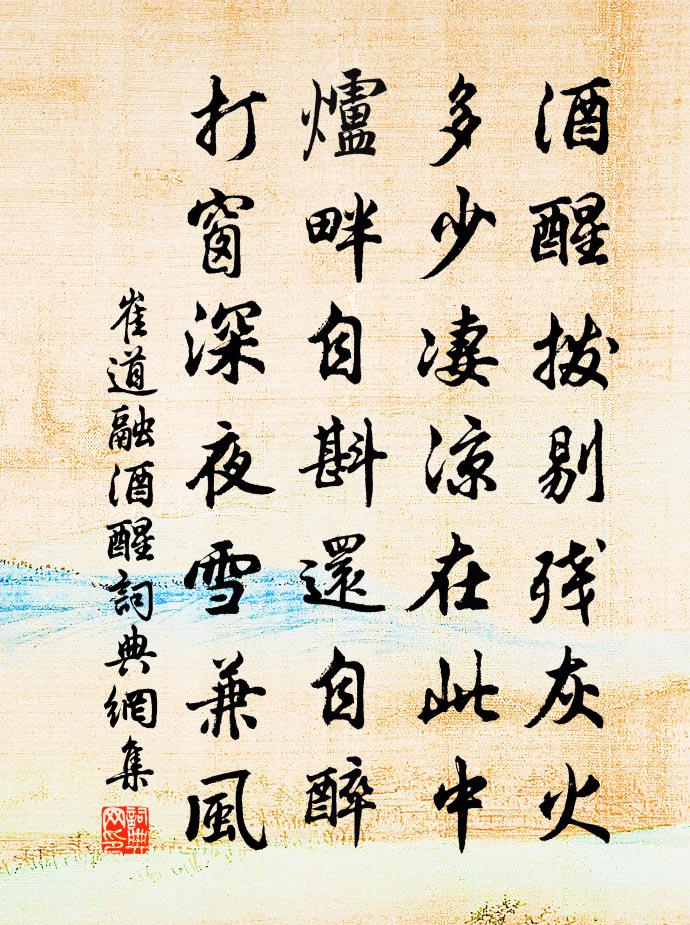 酒醒拨剔残灰火
多少凄凉在此中
爐畔自斟還自醉
打窗深夜雪兼風
崔道融酒醒詞典網集
詞典网印